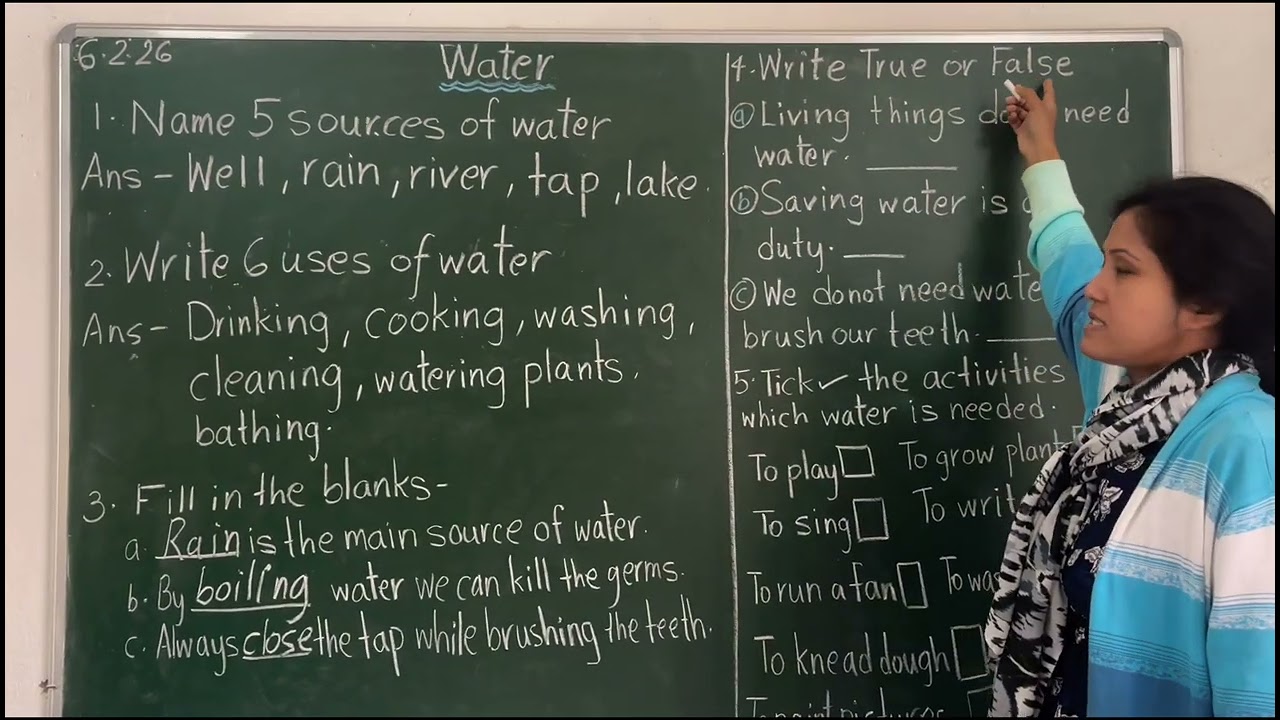 6.2.26
Water
1. Name 5 sources of water
Ans - Well, rain, river, tap, lake.
2. Write 6 uses of water
Ans - Drinking, cooking, washing,
cleaning, watering plants,
bathing.
3. Fill in the blanks-
a. Rain is the main source of water.
b. By boiling water we can kill the germs.
c. Always close the tap while brushing the teeth.
4. Write True or False
a Living things need
water.
b Saving water is
duty.
c We donot need
brush our teeth.
5. Tick ✓ the activities
which water is needed.
To play To grow
To sing To
To run a fan To
To knead dough